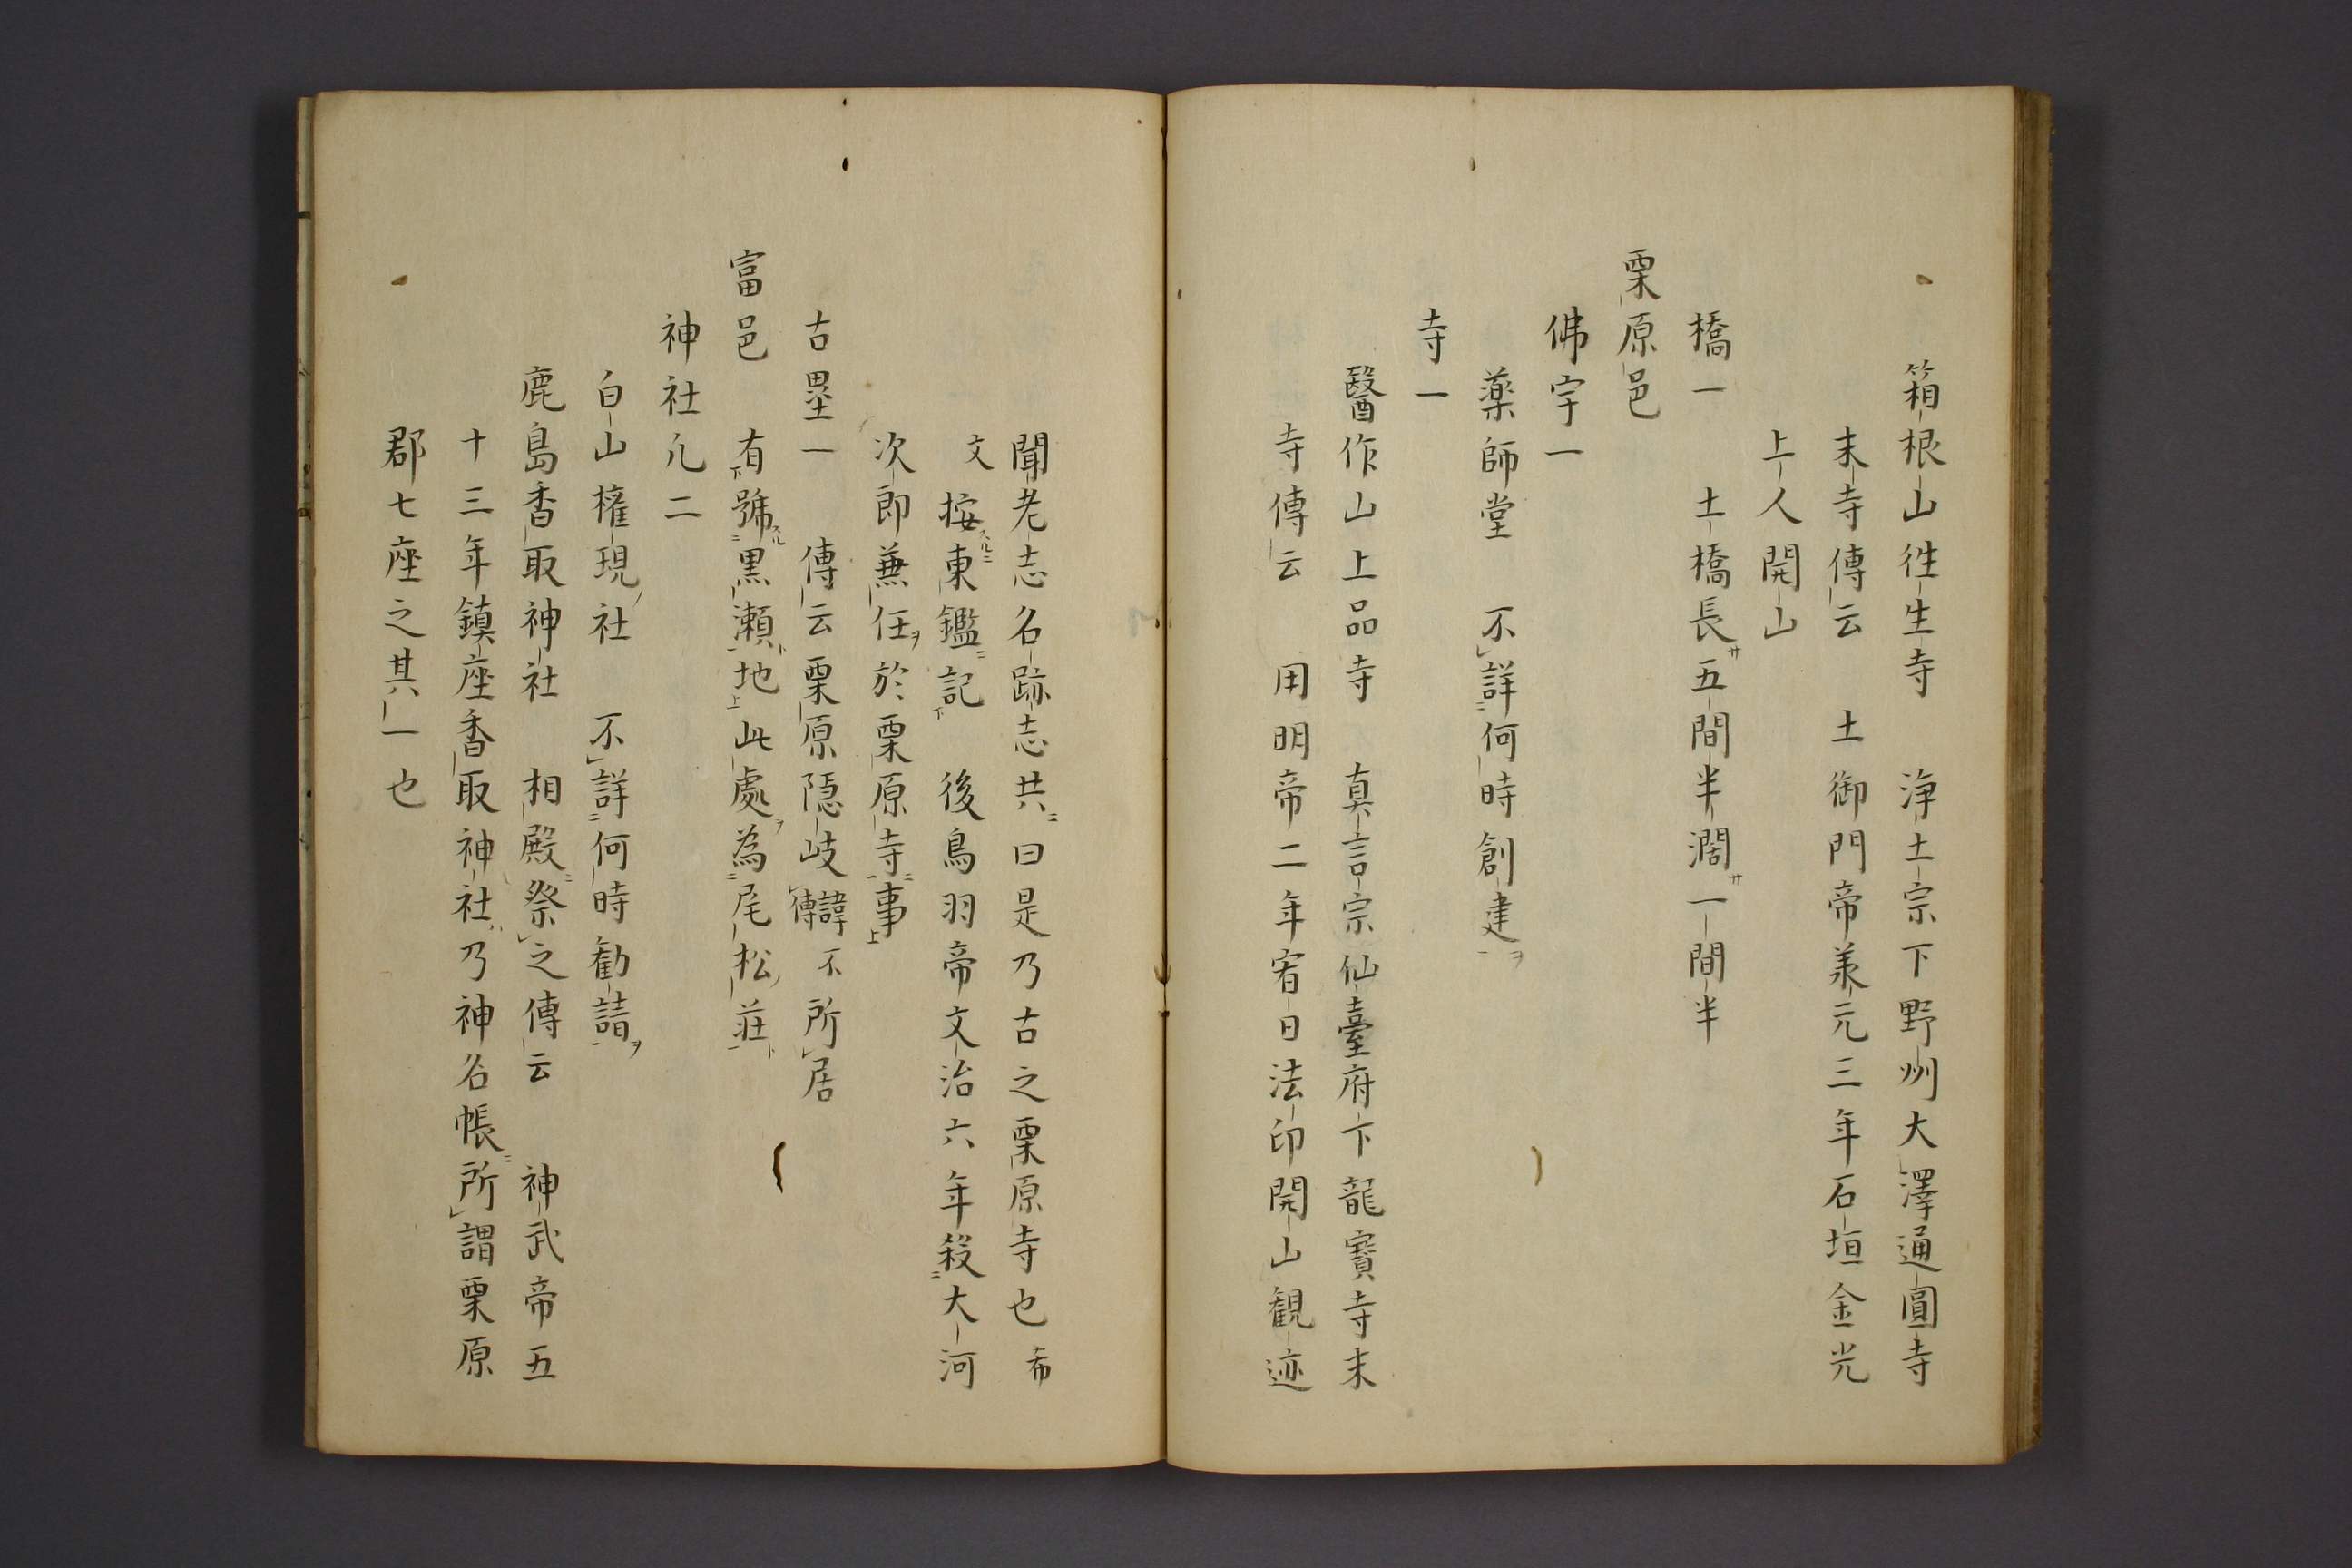 箱根山徃生寺　淨土宗下野州大澤通圓寺
末寺傳云　土御門帝羕元三年石垣金光
上人開山
橋一　土橋長サ五間半濶サ一間半
栗原邑
佛宇一
薬師堂　不詳何時創建
寺一
醫作山上品寺　真言宗仙臺府下龍寳寺末
寺傳云　用明帝二年宥日法印開山観迹
聞老志名跡志共曰是乃古之栗原寺也希
文按東鑑記　後鳥羽帝文治六年殺大河
次郎兼任於栗原寺事
古塁一　傳云栗原隠岐諱不傳所居
富邑　有號黒瀬地此處為尾松荘
神社凢二
白山権現社　不詳何時勧請
鹿島香取神社　相殿祭之傳云　神武帝五
十三年鎮座香取神社乃神名帳所謂栗原
郡七座之其一也